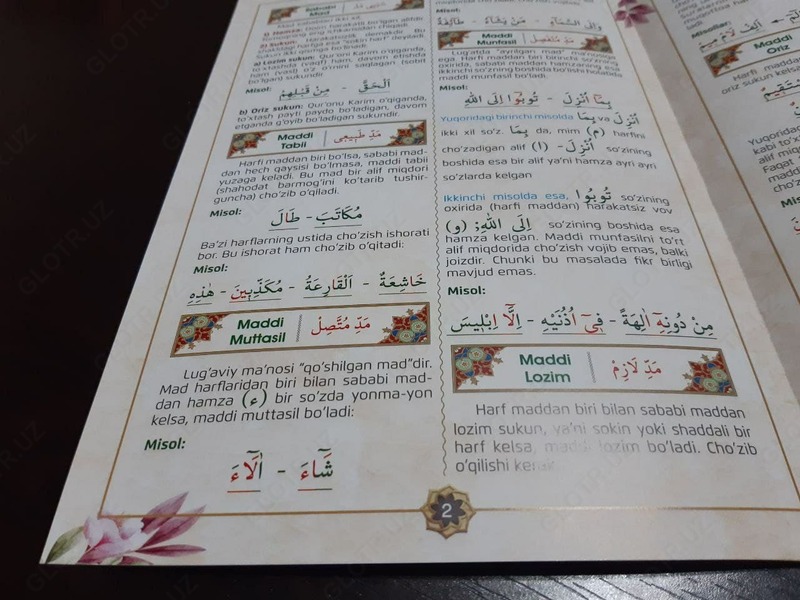 Sababi
Mad
1) Hamza:
2) Sukun:
a) Lozim sukun: Qur'oni Karim o'qiganda,
to'xtashda (vaqf) ham, davom etishda
ham (vasl) o'z o'rnini saqlagan (sobit
bo'lgan) sukundir.
Misol: اَلْحَقُّ - مِنْ قَبْلِهِمْ
b) Oriz sukun: Qur'onu Karim o'qiganda,
to'xtash payti paydo bo'ladigan, davom
etganda g'oyib bo'ladigan sukundir.
Maddi
Tabii
مَدِّ طَبِيعِى
Harfi maddan biri bo'lsa, sababi mad-
dan hech qaysisi bo'lmasa, maddi tabii
yuzaga keladi. Bu mad bir alif miqdori
(shahodat barmog'ini ko'tarib tushir-
guncha) cho'zib o'qiladi.
Misol:
مُكَاتَبَ - طَالَ
Ba'zi harflarning ustida cho'zish ishorati
bor. Bu ishorat ham cho'zib o'qitadi:
Misol:
خَاشِعَةٌ - اَلْقَارِعَةُ - مُكَذِّبِينَ - هٰذِهِ
Maddi
Muttasil
مَدِّ مُتَّصِلْ
Lug'aviy ma'nosi "qo'shilgan mad"dir.
Mad harflaridan biri bilan sababi mad-
dan hamza (ء) bir so'zda yonma-yon
kelsa, maddi muttasil bo'ladi:
Misol:
شَٓاءَ - اٰلَٓاءَ
Misol:
وَاِلَى السَّمَٓاءِ - مَنْ يَشَٓاءُ - طَٓائِفَةٌ
Maddi
Munfasil
مَدِّ مُنْفَصِلْ
Lug'atda "ayrilgan mad" ma'nosiga
ega. Harfi maddan biri birinchi so'zning
oxirida, sababi maddan hamzaning esa
ikkinchi so'zning boshida bo'lishi holatida
maddi munfasil bo'ladi.
Misol:
بِمَٓا اُنْزِلَ - تُوبُٓوا اِلَى اللّٰهِ
Yuqoridagi birinchi misolda بِمَٓا va اُنْزِلَ
ikki xil so'z. بِمَٓا da, mim (م) harfini
cho'zadigan alif (ا) - اُنْزِلَ so'zining
boshida esa bir alif ya'ni hamza ayri ayri
so'zlarda kelgan
Ikkinchi misolda esa, تُوبُٓوا so'zining
oxirida (harfi maddan) harakatsiz vov
(و) ;اِلَى اللّٰهِ so'zining boshida esa
hamza kelgan. Maddi munfasilni to'rt
alif miqdorida cho'zish vojib emas, balki
joizdir. Chunki bu masalada fikr birligi
mavjud emas.
Misol:
مِنْ دُونِهِٓ اٰلِهَةً - فِٓى اُذُنَيْهِ - اِلَّٓا اِبْلِيسَ
Maddi
Lozim
مَدِّ لَازِمْ
Harfi maddan biri bilan sababi maddan
lozim sukun, ya'ni sokin yoki shaddali bir
harf kelsa, maddi lozim bo'ladi. Cho'zib
o'qilishi kerak
2
Misollar:
Maddi
Oriz
Harfi maddan
oriz sukun kelsa
Yuqorida
kabi to'x
alif miq
Faqat
maddi
cho'z
GLOTR.UZ